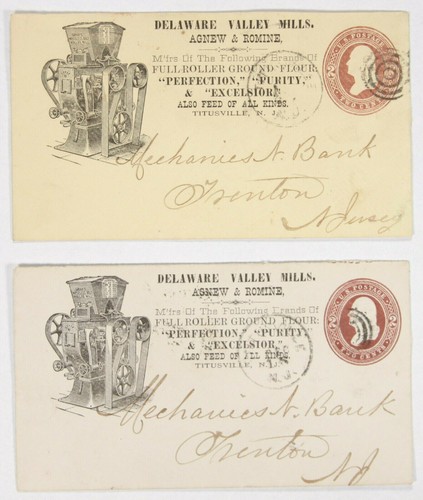 DELAWARE VALLEY MILLS.
AGNEW & ROMINE,
M'frs Of The Following Brands Of
FULL ROLLER GROUND FLOUR:
"PERFECTION," "PURITY,"
& "EXCELSIOR,"
ALSO FEED OF ALL KINDS.
TITUSVILLE, N. J.
U.S. POSTAGE
TWO CENTS
Mechanics N. Bank
Trenton
N Jersey
DELAWARE VALLEY MILLS.
AGNEW & ROMINE,
M'frs Of The Following Brands Of
FULL ROLLER GROUND FLOUR:
"PERFECTION," "PURITY,"
& "EXCELSIOR,"
ALSO FEED OF ALL KINDS.
TITUSVILLE, N. J.
U.S. POSTAGE
TWO CENTS
N.J.
Mechanics N. Bank
Trenton
NJ